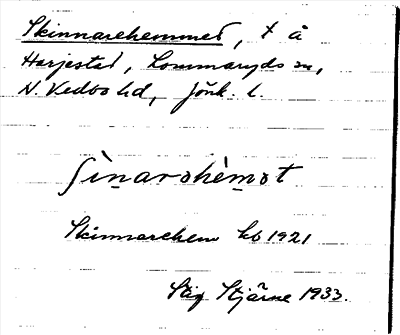 Skinnarehemmet, t å
Harjestad, Lommaryds sn,
N. Vedbo hd, Jönk. l.
ʃìnarəhèmət
Skinnarehem kb 1921
Stig Stjärne 1933.